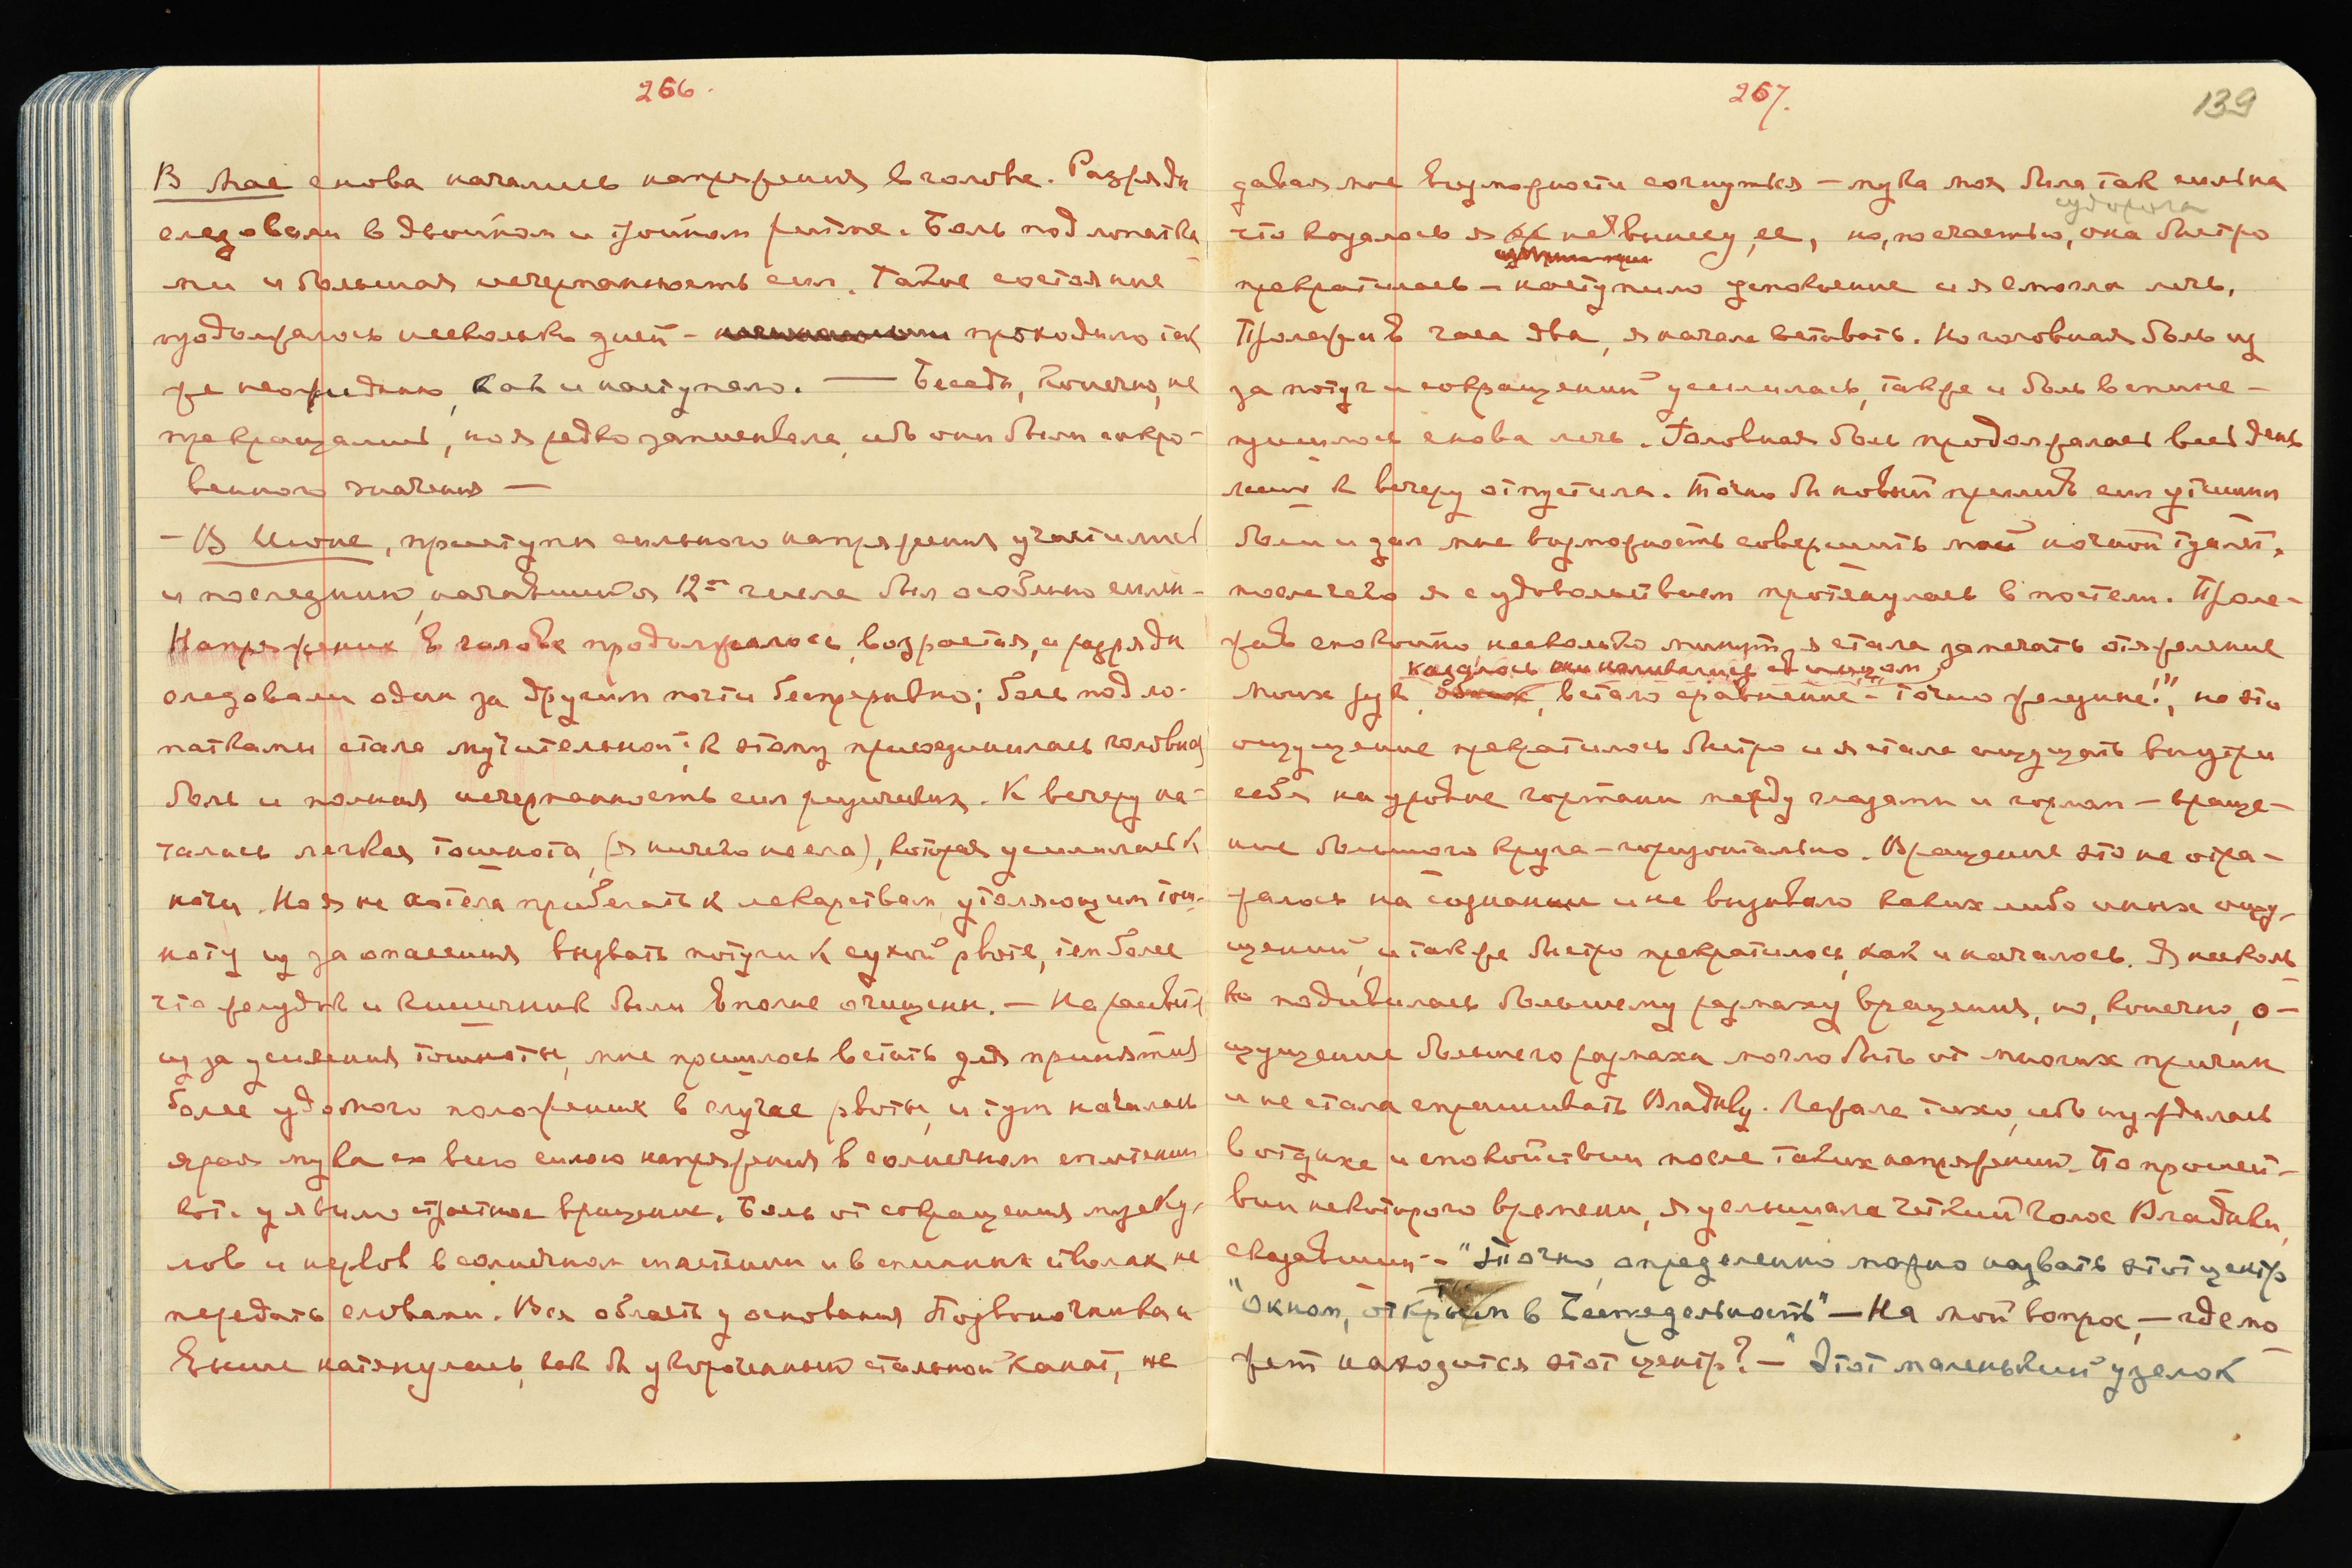 266.
В Мае снова начались напряжения в голове. Разряды
следовали в двойном и тройном ритме. Боль под лопатка
ми и большая исчерпанность сил. Такое состояние
продолжалось несколько дней - проходило так
же неожиданно, как и наступало. — Беседы, конечно, не
прекращались, но я редко записывала, ибо они были сокро-
венного значения —
- В Июне, приступы сильного напряжения участились
и последний, начавшийся 12го числа был особенно силен-
Напряжение в голове продолжалось, возрастая, и разряды
следовали один за другим почти беспрерывно; боль под ло-
патками стала мучительной; к этому присоединилась головная
боль и полная исчерпанность сил физических. К вечеру на-
чалась легкая тошнота, (я ничего не ела), которая усилилась к
ночи. Но я не хотела прибегать к лекарствам, утоляющим тош-
ноту из за опасения вызвать потуги к сухой рвоте, тем более
что желудок и кишечник были вполне очищены. — На рассвете
из за усиления тошноты, мне пришлось встать для принятия
более удобного положения в случае рвоты, и тут началась
ярая мука со всею силою напряжения в солнечном сплетении
вот. у явило страстное вращение. Боль от сокращения муску-
лов и нервов в солнечном сплетении и в спинных стволах не
передать словами. Вся область у основания Позвоночника и
выше натянулась, как бы укороченный стальной канат, не
267.
139
давая мне возможности согнуться — мука моя была так сильна
судорога
что казалось я не вынесу ее, но, по счастью, она быстро
прекратилась — наступило успокоение и я смогла лечь.
Пролежав часа два, я начала вставать. Но головная боль из
за потуг и сокращений усилилась, также и боль в спине —
пришлось снова лечь. Головная боль продолжалась весь день
лишь к вечеру отпустила. Точно бы новый прилив сил утишил
боли и дал мне возможность совершить мой ночной туалет,
после чего я с удовольствием протянулась в постели. Проле-
жав спокойно несколько минут, я стала замечать отяжеление
казалось они наливались свинцом
моих рук, встало сравнение - "точно железные!", но это
ощущение прекратилось быстро и я стала ощущать внутри
себя на уровне гортани между глазами и горлом — враще-
ние большого круга - горизонтально. Вращение это не отра-
жалось на сознании и не вызывало каких либо иных ощу-
щений, и так же быстро прекратилось, как и началось. Я несколь
ко подивилась большему размаху вращения, но, конечно, о-
щущение большего размаха могло быть от многих причин
и не стала спрашивать Владыку. Лежала тихо, ибо нуждалась
в отдыхе и спокойствии после таких напряжений. По прошест-
вии некоторого времени, я услышала четкий голос Владыки,
сказавший - "Точно, определенно можно назвать этот центр
"Окном, открытым в Беспредельность" — На мой вопрос, — где мо
жет находится этот центр? — "Этот маленький узелок